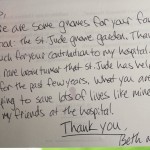 e are some gnomes for your fav
: the St. Jude gnome garden. Than
uch for your contribution to my hospital.
rare tumor that St. Jude has help
for the past few years. What you are
ping to save lots of lives like mine
my friends at the hospital.
Thank you,
Beth